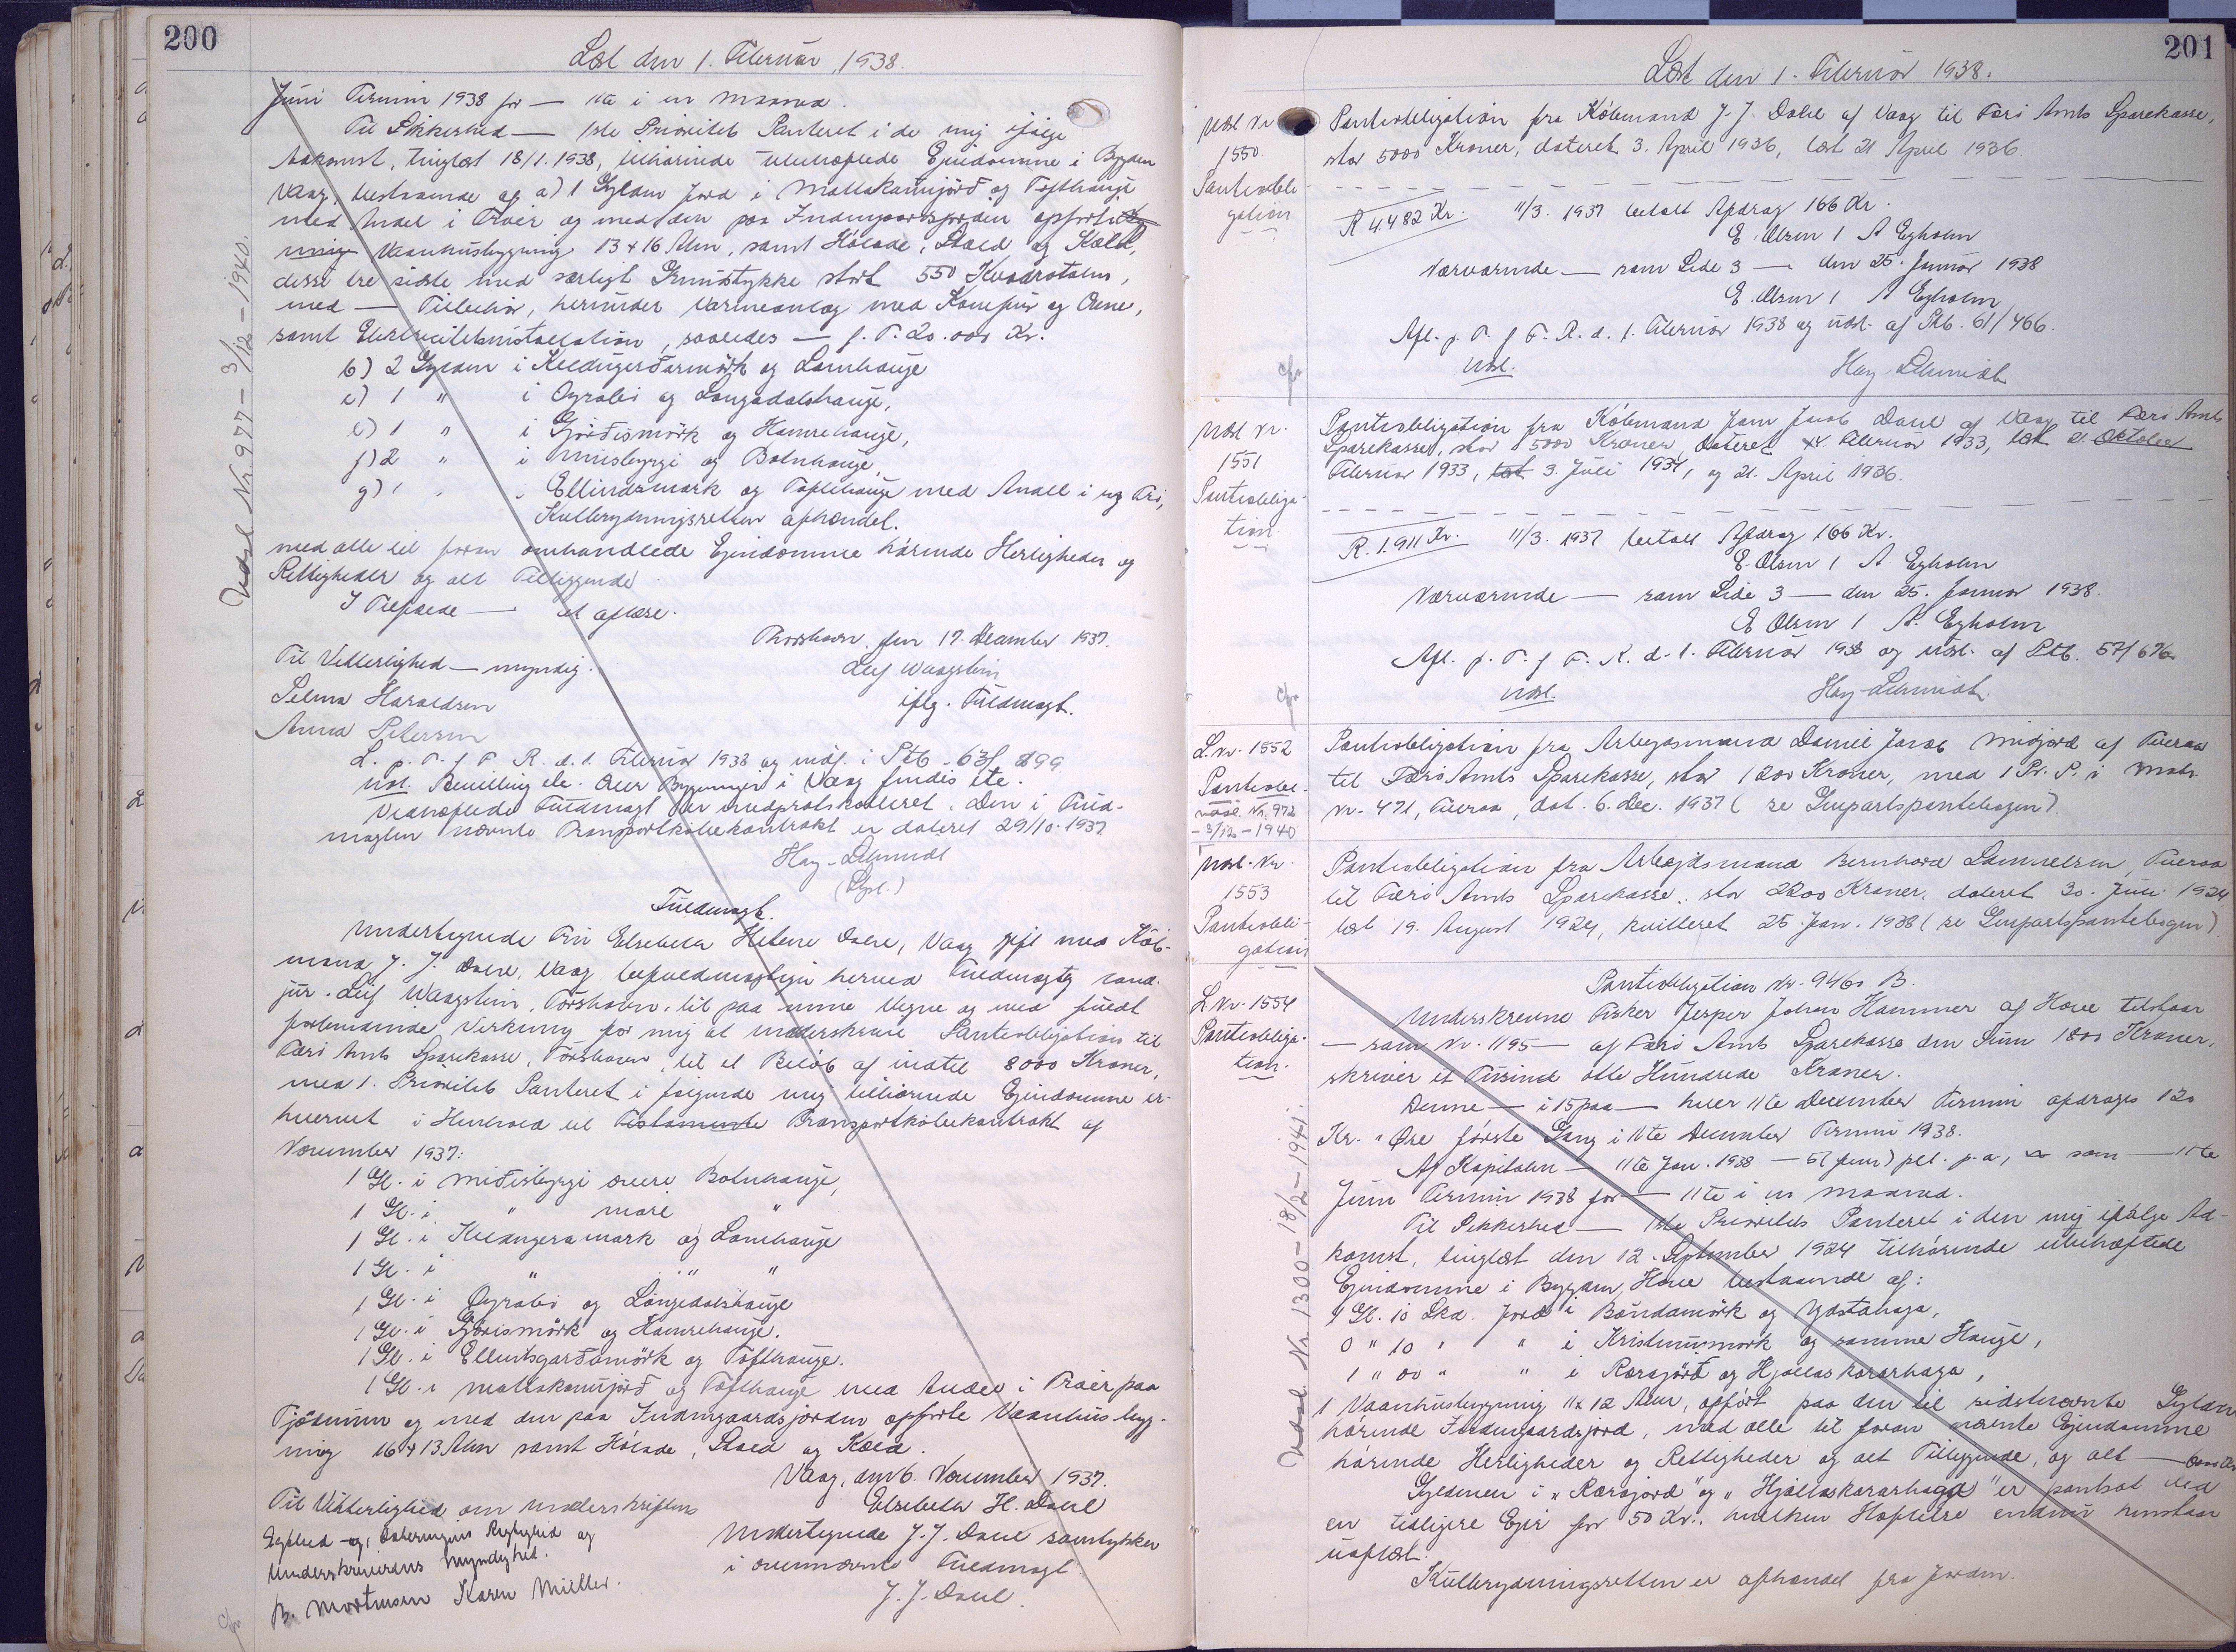 200
Læst den 1. Februar 1938.
Juni Termin 1938 for — 11te i en Maaned.
Til Sikkerhed — 1ste Prioritets Panteret i de mig ifølge
Adkomst, tinglæst 18/1. 1938, tilhørende ubehæftede Ejendomme i Bygden
Vaag, bestaaende af a) 1 Gylden Jord i Mattakamjørd og Tofthauge
med Andel i Traèr og med den paa Indmgaardsjorden opførte
Vaanhusbygning 13 x 16 Alen, samt Hölade, Stald og Kæld,
disse tre sidste med særligt Grundstykke stort 550 Kvadratalen,
med — Tilbehør, herunder Varmeanlæg med Komfur og Ovne,
samt Elektricitetsinstallation, saaledes — f. T. 20.000 Kr.
b) 2 Gylden i Kleungerðarmörk og Lamhauge
c) 1 " i Oyrabei og Langadalshauge,
e) 1 " i Gjørðismörk og Hamrehauge,
f) 2 " i Miðisbyrgi og Botnhauge,
g) 1 " " Ellindsmørk og Toftehauge med Andel i
Kulbrydningsretten afhændet.
med alle til foran omhandlede Ejendomme hörende Herligheder og
Rettigheder og alt Tilliggende
I Tilfælde — at aflæse.
Thorshavn, den 17. December 1937.
Til Vitterlighed — myndig.
Leif Waagstein
Selma Haraldsen
iflg. Fuldmagt.
Anna Petersen
L. p. T. f. F. R. d. 1. Februar 1938 og indf. i Ptb. 63/ 899
Udsl. Bevilling ctr. over Bygninger i Vaag findes ikke.
Vedhæftede Fuldmagt er indprotokolleret. Den i Fuld-
magten nævnte Transportkøbekontrakt er dateret 29/10. 1937
Hay-Schmidt
(Stpl.)
Fuldmagt.
Undertegnede Fru Elsebeth Helene Dahl, Vaag gift med Köb-
mand J. J. Dahl, Vaag befuldmægtiger herved Fuldmægtig cand.
jur. Leif Waagstein, Tórshavn, til paa mine Vegne og med fuldt
forbindende Virkning for mig at underskrive Pantobligation til
Færö Amts Sparekasse, Tórshavn, til et Belöb af indtil 8000 Kroner,
med 1. Prioritets Panteret i følgende mig tilhørende Ejendomme er-
hvervet i Henhold til Testamente Transportköbekontrakt af
November 1937:
1 Gl. i Miðisbyrgi övere Botnhauge,
1 Gl. i " " "
1 Gl. i Kleungera mørk og Lamhauge
1 Gl. i " " "
1 Gl. i Oyrabei og Langedalshauge
1 Gl. i Gjørismörk og Hamrehauge.
1 Gl. i Ellindsgarðamörk og Tofthauge.
1 Gl. i Mattakamjörd og Tofthauge med Andel i Traèr paa
Tjödnum og med den paa Indmgaardsjorden opførte Vaanhusbyg-
ning 16 x 13 Alen samt Hölade, Stald og Kæld.
Vaag, den 6. November 1937.
Til Vitterlighed om Underskriftens
Elsebeth H. Dahl
Ægthed og, Dateringens Rigtighed og
Undertegnede J. J. Dahl samtykker
Underskriverens Myndighed.
i ovennævnte Fuldmagt
B. Mortensen Karen Müller.
J. J. Dahl.
Udsl. Nr. 977 – 3/12 – 1940.
201
Læst den 1. Februar 1938.
Udsl. Nr.
1550.
Pantobli-
gation
Pantobligation fra Købmand J. J. Dahl af Vaag til Færö Amts Sparekasse,
stor 5000 Kroner, dateret 3. April 1936, læst 21 April 1936.
R 4.482 Kr. 11/3. 1937 betalt Afdrag 166 Kr.
E. Olsen / A Egholm
Nærværende — som Side 3 — den 25. Januar 1938
E. Olsen / A Egholm
Afl. p. T. f. F. R. d. 1. Februar 1938 og udsl. af Ptb. 61/466.
Udsl. Hay-Schmidt
Udsl. Nr.
1551
Pantobliga-
tion.
Pantobligation fra Köbmand Jens Jacob Dahl af Vaag til Færö Amts
Sparekasse, stor 5000 Kroner, dateret Februar 1933, læst 21. Oktober
Februar 1933, læst 3. Juli 1934, og 21. April 1936.
R. 1.911 Kr. 11/3. 1937 betalt Afdrag 166 Kr.
E. Olsen / A. Egholm
Nærværende — som Side 3 — den 25. Januar 1938.
E Olsen / A. Egholm
Afl. p. T. f. F. R. d. 1. Februar 1938 og udsl. af Ptb. 57/676
Udsl. Hay-Schmidt
L. Nr. 1552
Pantobl.
Udsl. Nr. 972
– 3/12 – 1940
Pantobligation fra Arbejdsmand Daniel Jacob Midjord af Tveraa
til Færö Amts Sparekasse, stor 1200 Kroner, med 1 Pr. P. i Matr.
Nr. 471, Tveraa, dat. 6. Dec. 1937 (se Genpartspantebogen)
Udsl. Nr.
1553
Pantobli-
gation
Pantobligation fra Arbejdsmand Bernhard Samuelsen, Tveraa
til Færö Amts Sparekasse, stor 2200 Kroner, dateret 30. Juli 1924
læst 19. August 1924, kvitteret 25. Jan. 1938 (se Genpartspantebogen)
Pantobligation Nr. 9460 B.
L. Nr. 1554
Pantobliga-
tion.
Underskrevne Fisker Jesper Johan Hammer af Hove tilstaar
— som Nr. 1195 — af Færö Amts Sparekasse den Sum 1800 Kroner,
skriver et Tusinde otte Hundrede Kroner.
Denne — i 15 paa — hver 11te December Termin afdrages 120
Kr. " Øre første Gang i 11te December Termin 1938.
Af Kapitalen — 11te Jan. 1938 — 5 (fem) pCt. p. a., som — 11te
Juni Termin 1938 for — 11te i en Maaned.
Til Sikkerhed — 1ste Prioritets Panteret i den mig ifölge Ad-
komst, tinglæst den 12. September 1924 tilhørende ubehæftede
Ejendomme i Bygden Hove bestaaende af:
1 Gl. 10 Skd. Jord i Bóndamörk og Ydstahaga,
0 " 10 " " i Kristinnsmørk og samme Hauge,
1 " 00 " " i Rærsjörd og Hjallaskararhaga,
1 Vaanhusbygning 11 x 12 Alen, opført paa den til sidstnævnte Gylden
hörende Indmgaardsjord, med alle til foran nævnte Ejendomme
hörende Herligheder og Rettigheder og alt Tilliggende, og alt — 6000 Kr.
Gyldenen i „Rærsjord" og „Hjallaskararhaga" er pantsat ved
en tidligere Ejer for 50 Kr., hvilken Hæftelse endnu henstaar
uaflæst.
Kulbrydningsretten er afhændet fra Jorden.
Udsl. Nr. 1300 – 18/2 – 1941.